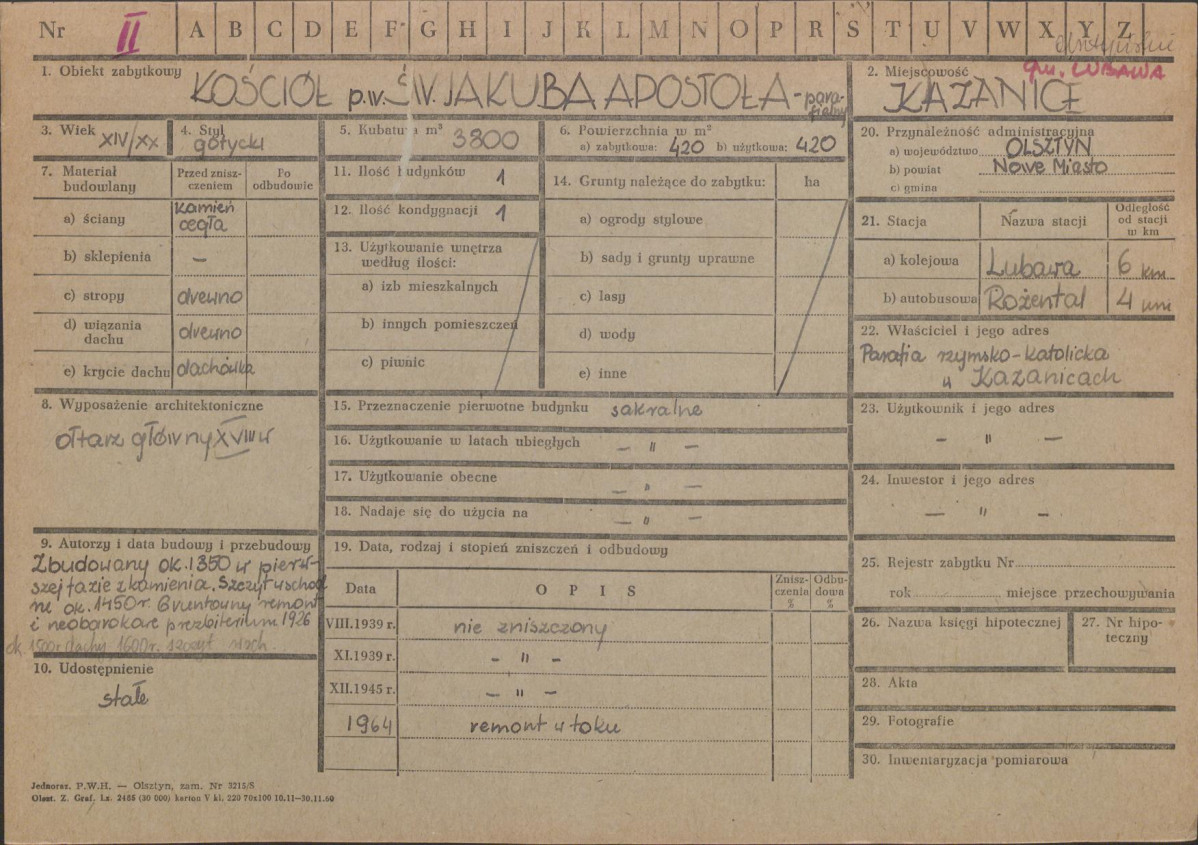 Nr II A B C D E F G H I J K L M N O P R S T U V W X Y Z
1. Obiekt zabytkowy KOŚCIÓŁ p.w. ŚW. JAKUBA APOSTOŁA - para-
fialny
2. Miejscowość gm. LUBAWA
KAZANICE
3. Wiek XIV/XX
4. Styl gotycki
5. Kubatura m³ 3800
6. Powierzchnia w m²
a) zabytkowa: 420 b) użytkowa: 420
7. Materiał budowlany
Przed znisz-
czeniem
Po
odbudowie
a) ściany kamień
cegła
b) sklepienia –
c) stropy drewno
d) wiązania
dachu drewno
e) krycie dachu dachówka
8. Wyposażenie architektoniczne
ołtarz główny XVIII w
9. Autorzy i data budowy i przebudowy
Zbudowany ok. 1350 w pierw-
szej fazie z kamienia. Szczyt wschod
ni ok. 1450 r. Gruntowny remont
i neobarokowe prezbiterium 1926
ok. 1500r dachy 1600 r. szczyt
10. Udostępnienie
stałe
11. Ilość budynków 1
12. Ilość kondygnacji 1
13. Użytkowanie wnętrza
według ilości:
a) izb mieszkalnych
b) innych pomieszczeń
c) piwnic
14. Grunty należące do zabytku: ha
a) ogrody stylowe
b) sady i grunty uprawne
c) lasy
d) wody
e) inne
15. Przeznaczenie pierwotne budynku sakralne
16. Użytkowanie w latach ubiegłych – " –
17. Użytkowanie obecne – " –
18. Nadaje się do użycia na – " –
19. Data, rodzaj i stopień zniszczeń i odbudowy
Data OPIS Znisz-
czenia
% Odbu-
dowa
%
VIII.1939 r. nie zniszczony
XI.1939 r. – " –
XII.1945 r. – " –
1964 remont w toku
20. Przynależność administracyjna
a) województwo OLSZTYN
b) powiat Nowe Miasto
c) gmina
21. Stacja Nazwa stacji Odległość
od stacji
w km
a) kolejowa Lubawa 6 km
b) autobusowa Rożental 4
22. Właściciel i jego adres
Parafia rzymsko-katolicka
w Kazanicach
23. Użytkownik i jego adres
– " –
24. Inwestor i jego adres
– " –
25. Rejestr zabytku Nr
rok miejsce przechowywania
26. Nazwa księgi hipotecznej
27. Nr hipo-
teczny
28. Akta
29. Fotografie
30. Inwentaryzacja pomiarowa
Jednoraz. P.W.H. — Olsztyn, zam. Nr 3215/S
Olszt. Z. Graf. Lz. 2485 (30 000) karton V kl. 220 70x100 10.11—30.11.60